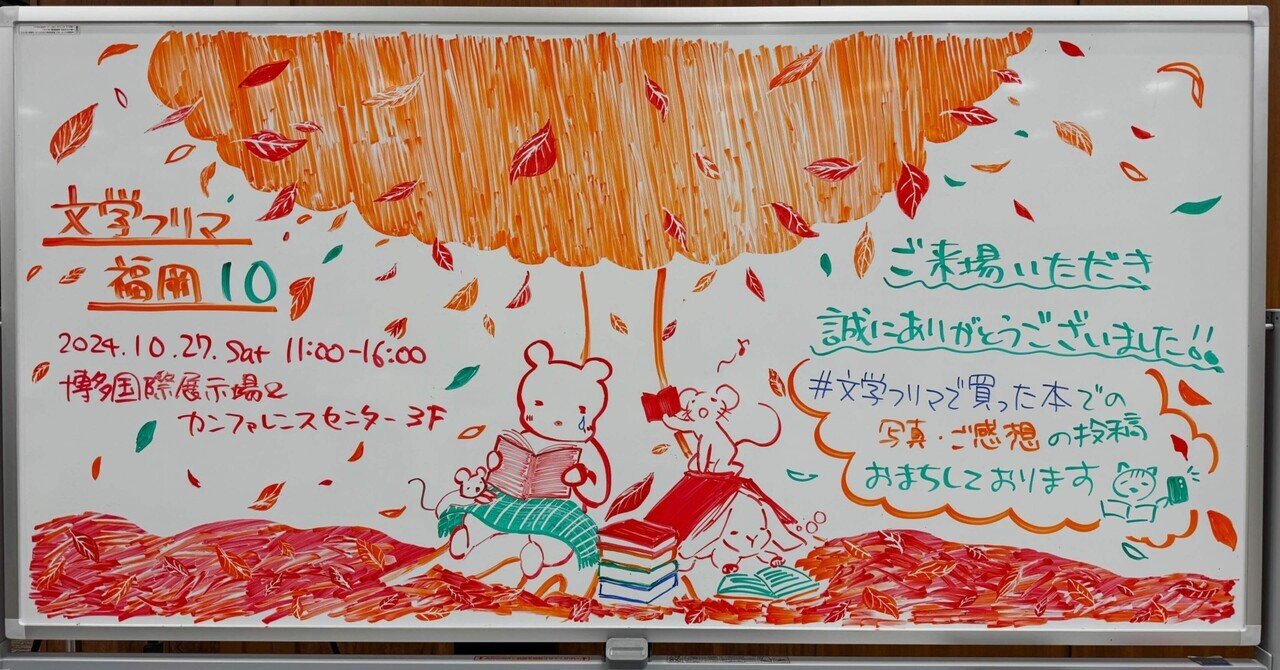 文学フリマ
福岡10
2024.10.27.Sat 11:00-16:00
博多国際展示場&
カンファレンスセンター 3F
ご来場いただき
誠にありがとうございました!!
#文学フリマで買った本での
写真・ご感想の投稿
おまちしております